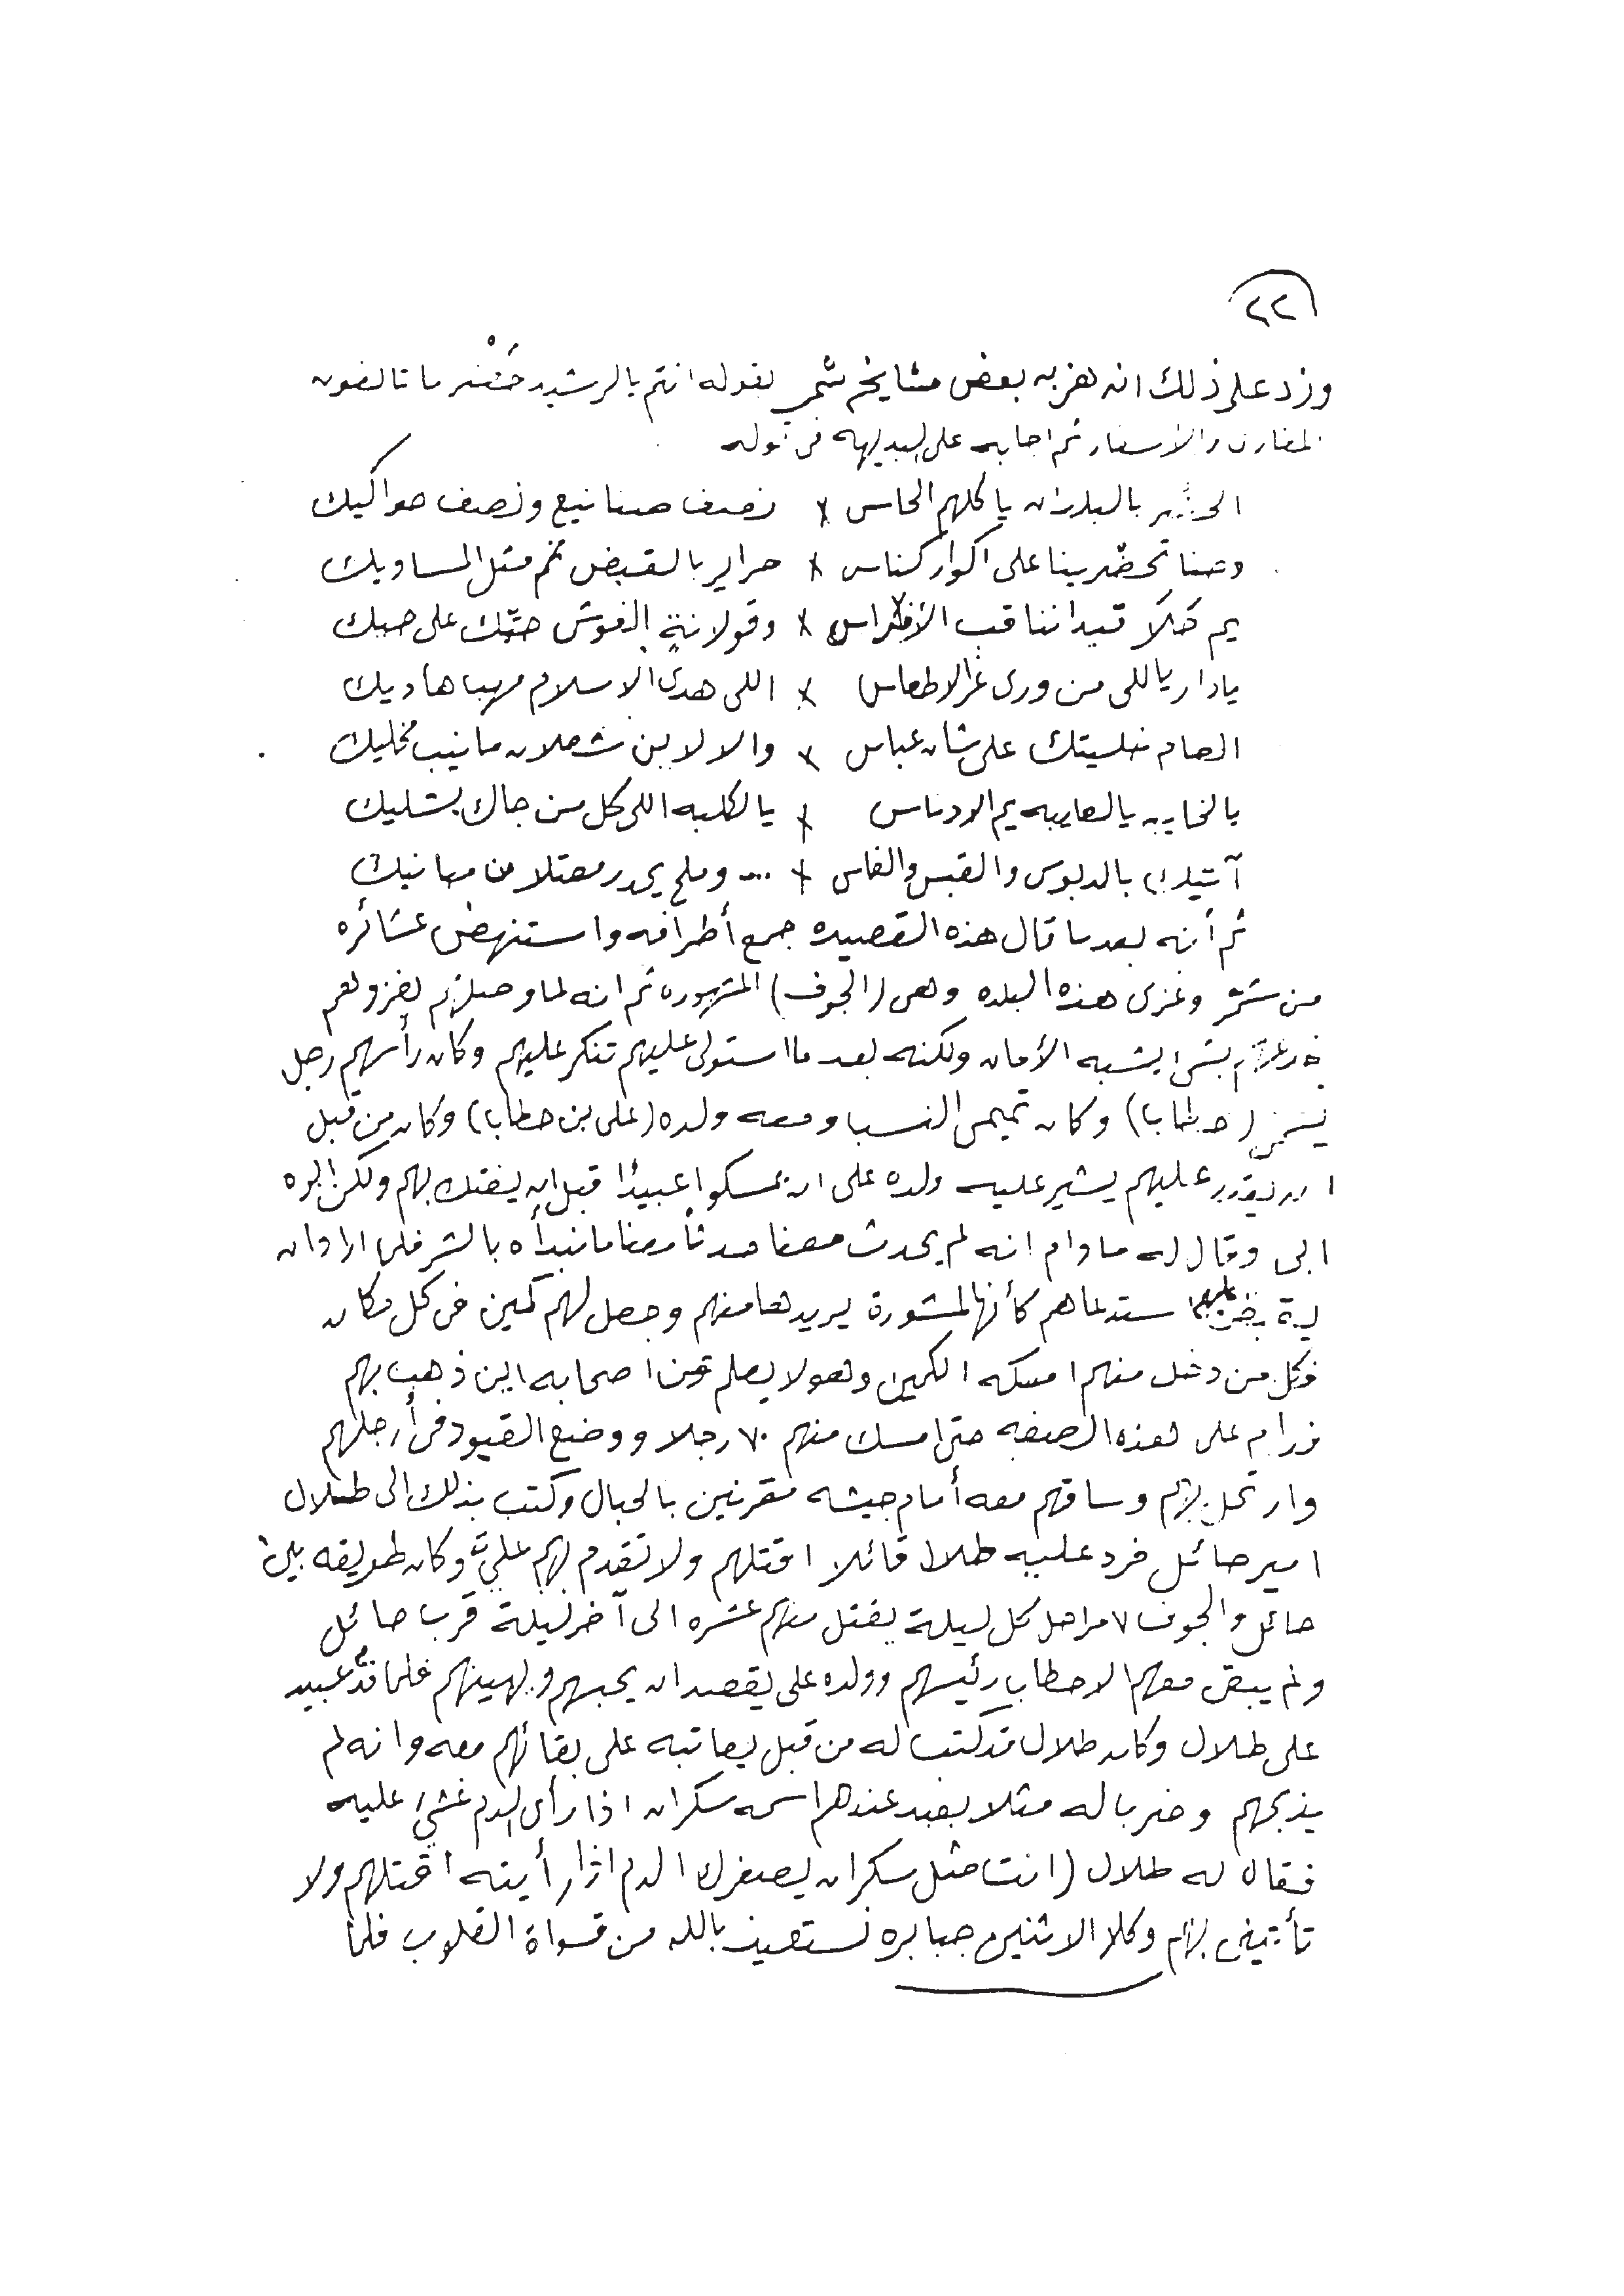 ٢٢
وزد على ذلك انه هزبه بعض مشايخ شمر لقوله انتم يالرشيد حضر ما تالفون
المغازي والأسفار ثم اجابه على البديهه في قوله
الحضر بالبلدان ياكلهم الحاس * نصف صنانيع ونصف حواكيك
وحنا تحضرينا على اكوار كناس * حراير بالقيض ثم مثل المساويك
يم قيداننا قب الأفراس * وقولانة حتك على حيك
يادار ياللي من ورى غر الاطعاس * اللي هدى الاسلام مهب هاديك
العام خليتك على شان عباس * والا لابن شعلان مانيب مخليك
يالخايبه يالعايبه يم الادناس * يالكلبه اللي كل من جاك يشليك
آتيك بالدبوس والقبس والفاس * ... وملح يحدر معتلا من مبانيك
ثم أنه بعد ما قال هذه القصيده جمع أطرافه واستنهض عشائره
من شمر وغزى هذه البلده وهي (الجوف) المشهوره ثم انه لما وصلهم لغزوهم
بشيء يشبه الأمان ولكنه بعد ما استولى عليهم تنكر عليهم وكان رأسهم رجل
يسمى (حطابا) وكان تميمي النسب ومعه ولده (علي بن حطاب) وكان من قبل
ان يقدر عليهم يشير عليه ولده على ان يمسكوا عبيدًا قبل ان يفتك بهم ولكن ابوه
ابى وقال له ما دام انه لم يحدث معنا حدثاً معنا ما نبدأه بالشر فلما اراد ان
عليهم استدعاهم كأنها لمشورة يريدها منهم وجعل لهم كمين في كل مكان
فكل من دخل منهم امسكه الكمين وهو لا يعلم عن اصحابه اين ذهب بهم
فدام على هذه الصفه حتى امسك منهم ٧٠ رجلا ووضع القيود في أرجلهم
وارتحل بهم وساقهم معه أمام جيشه مقرنين بالحبال وكتب بذلك الى طلال
امير حائل فرد عليه طلال قائلا اقتلهم ولا تقدم بهم عليّ وكان طريقه بين
حائل والجوف ٧ مراحل كل ليلة يقتل منهم عشره الى آخر ليلة قرب حائل
ولم يبقى معهم الا حطاب رئيسهم وولده علي يقصد ان يحبسهم ويهينهم فلما قدم عبيد
على طلال وكان طلال قد كتب له من قبل يعاتبه على بقائهم معه وانه لم
يذبحهم وضرب له مثلا بعبد عندهم اسمه سكران اذا رأى الدم غشي عليه
فقال له طلال (انت مثل سكران يصفرك الدم اذا رأيته اقتلهم ولا
تأتيني بهم وكلا الاثنين جبابره نستعيذ بالله من قسواة القلوب فلما